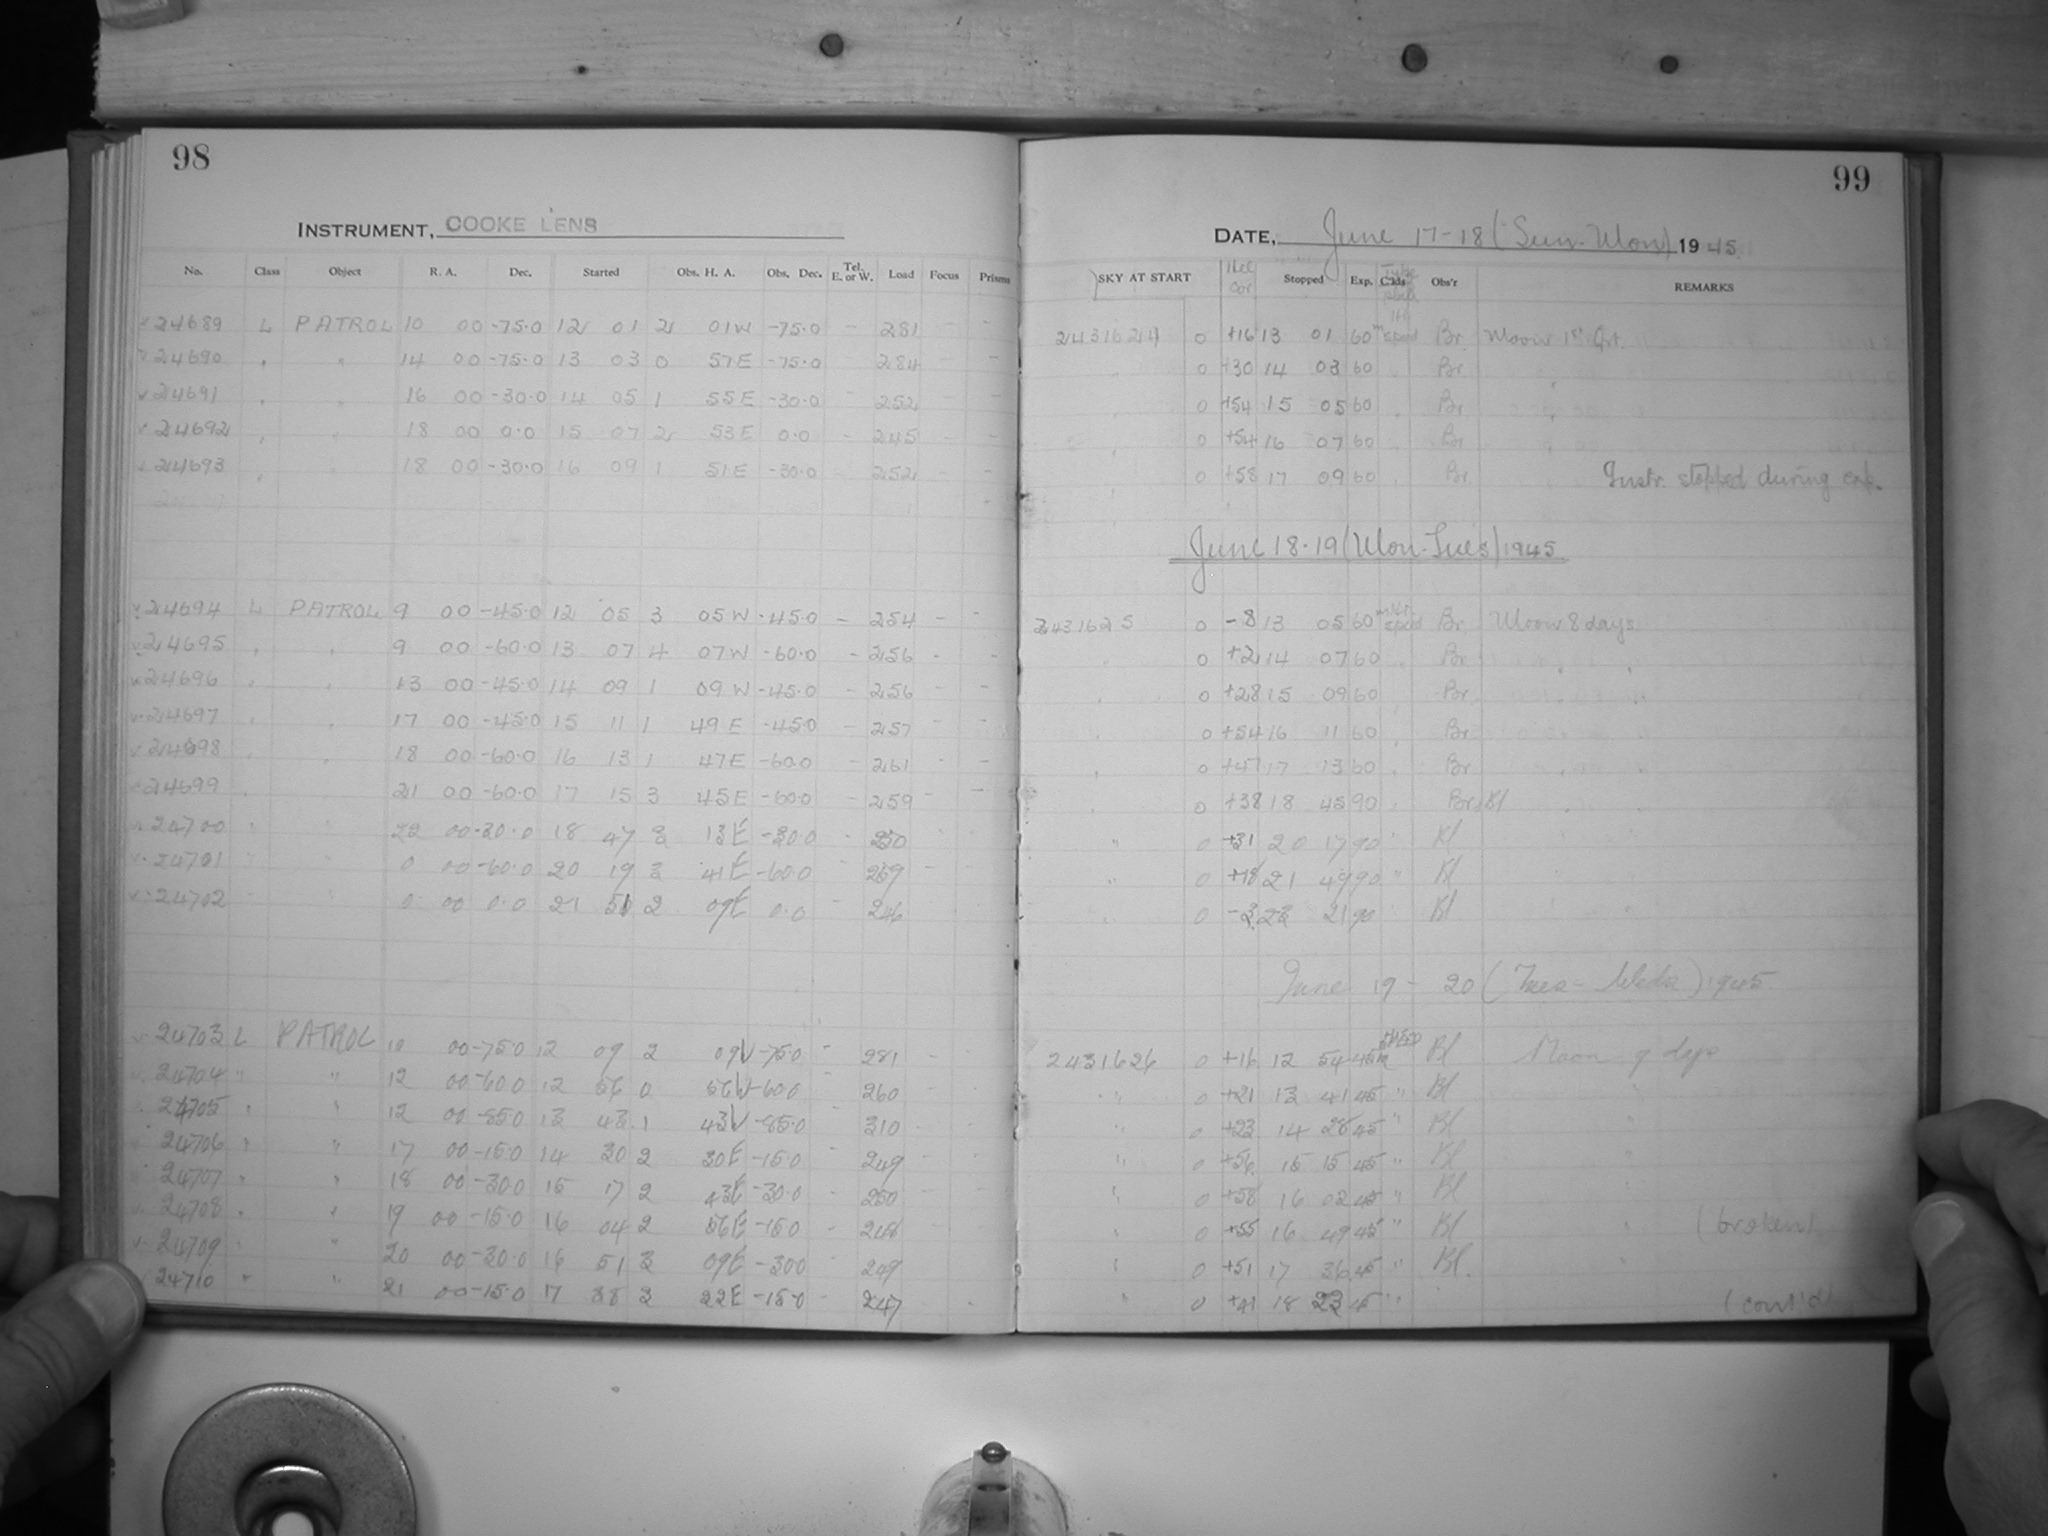 98
INSTRUMENT, COOKE LENS
No. Class Object R. A. Dec. Started Obs. H. A. Obs. Dec. Tel. E. or W. Load Focus Prisms
24689 L PATROL 10 00 -75.0 12 01 2 01W -75.0 - 281 - -
24690 " " 14 00 -75.0 13 03 0 57E -75.0 - 284
24691 " " 16 00 -30.0 14 05 1 55E -30.0 - 252 - -
24692 " " 18 00 0.0 15 07 2 53E 0.0 - 245 - -
24693 " " 18 00 -30.0 16 09 1 51E -30.0 - 252 - -
24694 L PATROL 9 00 -45.0 12 05 3 05W -45.0 - 254 - -
24695 " " 9 00 -60.0 13 07 4 07W -60.0 - 256 - -
24696 " " 13 00 -45.0 14 09 1 09W -45.0 - 256 - -
24697 " " 17 00 -45.0 15 11 1 49E -45.0 - 257 - -
24698 " " 18 00 -60.0 16 13 1 47E -60.0 - 261 - -
24699 " " 21 00 -60.0 17 15 3 45E -60.0 - 259 - -
24700 " " 22 00 -30.0 18 47 3 13E -30.0 - 250
24701 " " 0 00 -60.0 20 19 3 41E -60.0 - 259
24702 " " 0 00 0.0 21 51 2 09E 0.0 - 246
24703 L PATROL 10 00 -75.0 12 09 2 09W -75.0 - 281 -
24704 " " 12 00 -60.0 12 56 0 56W -60.0 260
24705 " " 12 00 -85.0 13 43 1 43W -85.0 310
24706 " " 17 00 -15.0 14 30 2 30E -15.0 - 249
24707 " " 18 00 -30.0 15 17 2 43E -30.0 - 250
24708 " " 19 00 -15.0 16 04 2 56E -15.0 - 248
24709 " " 20 00 -30.0 16 51 3 09E -30.0 - 249
24710 " " 21 00 -15.0 17 38 3 22E -15.0 - 247
99
DATE, June 17-18 (Sun-Mon) 1945
SKY AT START Hel Cor Stopped Exp. Obs'r REMARKS
2431624 0 +16 13 01 60m Br Moon 1st Qrt.
" 0 +30 14 03 60 " Br "
" 0 +54 15 05 60 " Br
" 0 +54 16 07 60 " Br "
" 0 +58 17 09 60 " Br " Instr. stopped during exp.
June 18-19 (Mon-Tues) 1945
2431625 0 -8 13 05 60m Br Moon 8 days
" 0 +2 14 07 60 " Br " "
" 0 +28 15 09 60 " Br " "
" 0 +54 16 11 60 " Br
" 0 +47 17 13 60 " Br " "
" 0 +38 18 45 90 " Br Bl " "
" 0 +31 20 17 90 " Bl
" 0 +18 21 49 90 " Bl
" 0 -3 23 21 90 Bl
June 19-20 (Tues-Weds) 1945.
2431626 0 +16 12 54 45m Bl Moon 9 days
" 0 +21 13 41 45 " Bl "
" 0 +23 14 28 45 " Bl
" 0 +56 15 15 45 " Bl "
" 0 +58 16 02 45 " Bl
" 0 +55 16 49 45 " Bl " (broken)
" 0 +51 17 36 45 " Bl. "
" 0 +41 18 23 45 " (cont'd)